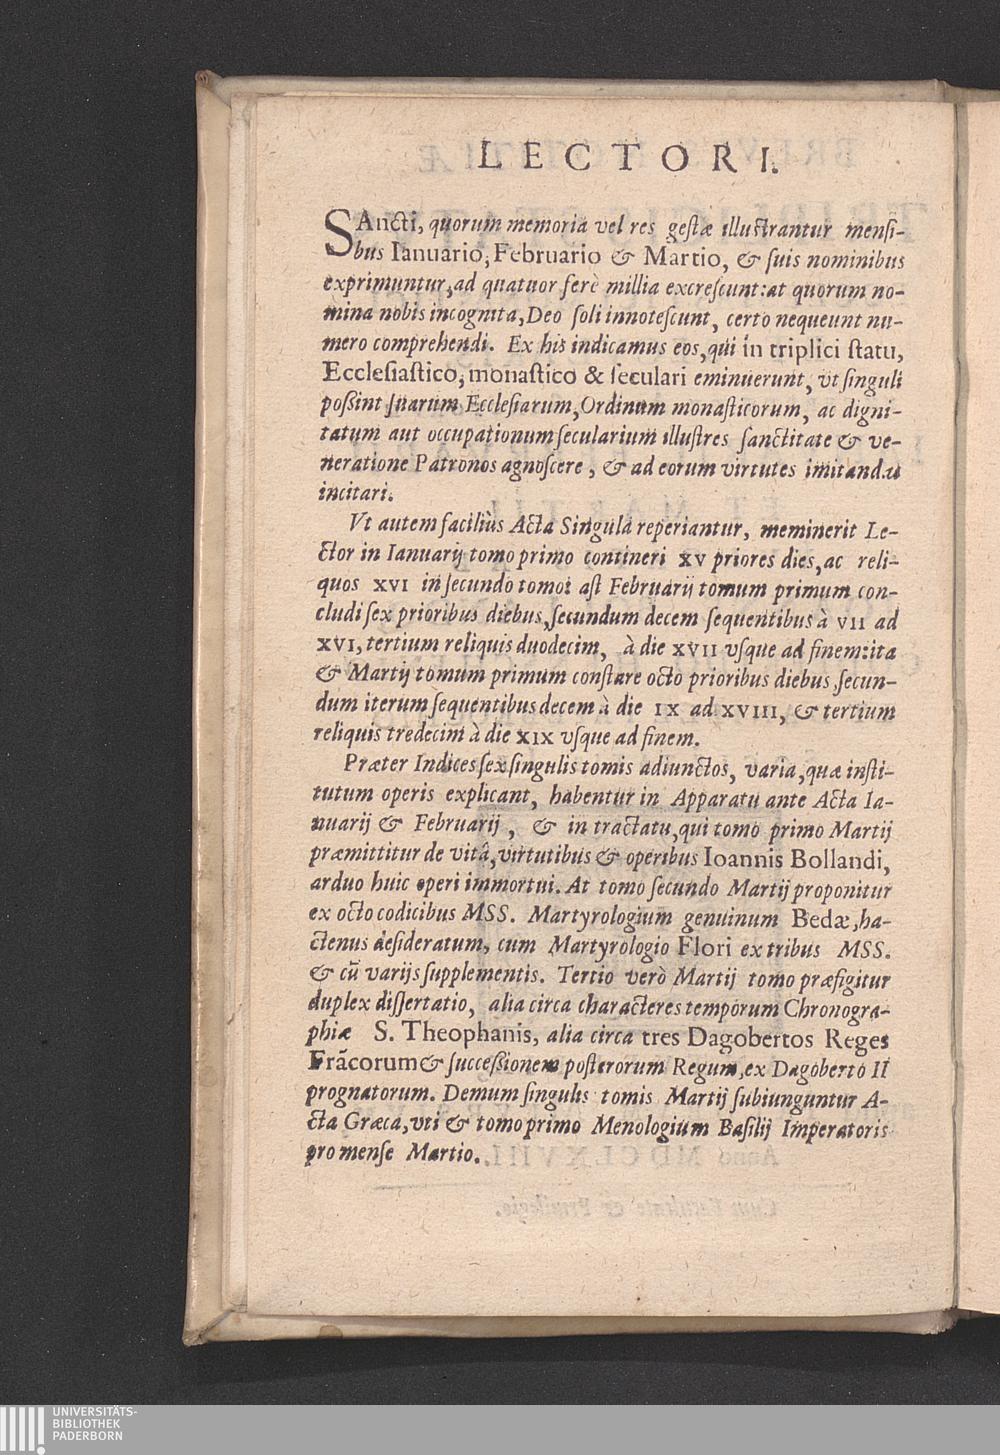 LECTORI.
SAncti, quorum memoria vel res gestæ illustrantur mensi-
bus Ianuario, Februario & Martio, & suis nominibus
exprimuntur, ad quatuor ferè millia excrescunt: at quorum no-
mina nobis incognita, Deo soli innotescunt, certo nequeunt nu-
mero comprehendi. Ex his indicamus eos, qui in triplici statu,
Ecclesiastico, monastico & seculari eminuerunt, vt singuli
poßint suarum Ecclesiarum, Ordinum monasticorum, ac digni-
tatum aut occupationum secularium illustres sanctitate & ve-
neratione Patronos agnoscere, & ad eorum virtutes imitandas
incitari.
Vt autem faciliùs Acta Singula reperiantur, meminerit Le-
ctor in Ianuarij tomo primo contineri XV priores dies, ac reli-
quos XVI in secundo tomo: ast Februarij tomum primum con-
cludi sex prioribus diebus, secundum decem sequentibus à VII ad
XVI, tertium reliquis duodecim, à die XVII vsque ad finem: ita
& Martij tomum primum constare octo prioribus diebus, secun-
dum iterum sequentibus decem à die IX ad XVIII, & tertium
reliquis tredecim à die XIX vsque ad finem.
Præter Indices sex singulis tomis adiunctos, varia, quæ insti-
tutum operis explicant, habentur in Apparatu ante Acta Ia-
nuarij & Februarij, & in tractatu, qui tomo primo Martij
præmittitur de vitâ, virtutibus & operibus Ioannis Bollandi,
arduo huic operi immortui. At tomo secundo Martij proponitur
ex octo codicibus MSS. Martyrologium genuinum Bedæ, ha-
ctenus desideratum, cum Martyrologio Flori ex tribus MSS.
& cũ varijs supplementis. Tertio verò Martij tomo præfigitur
duplex dissertatio, alia circa characteres temporum Chronogra-
phiæ S. Theophanis, alia circa tres Dagobertos Reges
Frãcorum & succeßionem posterorum Regum, ex Dagoberto II
prognatorum. Demum singulis tomis Martij subiunguntur A-
cta Græca, vti & tomo primo Menologium Basilij Imperatoris
pro mense Martio.
UNIVERSITÄTS-
BIBLIOTHEK
PADERBORN